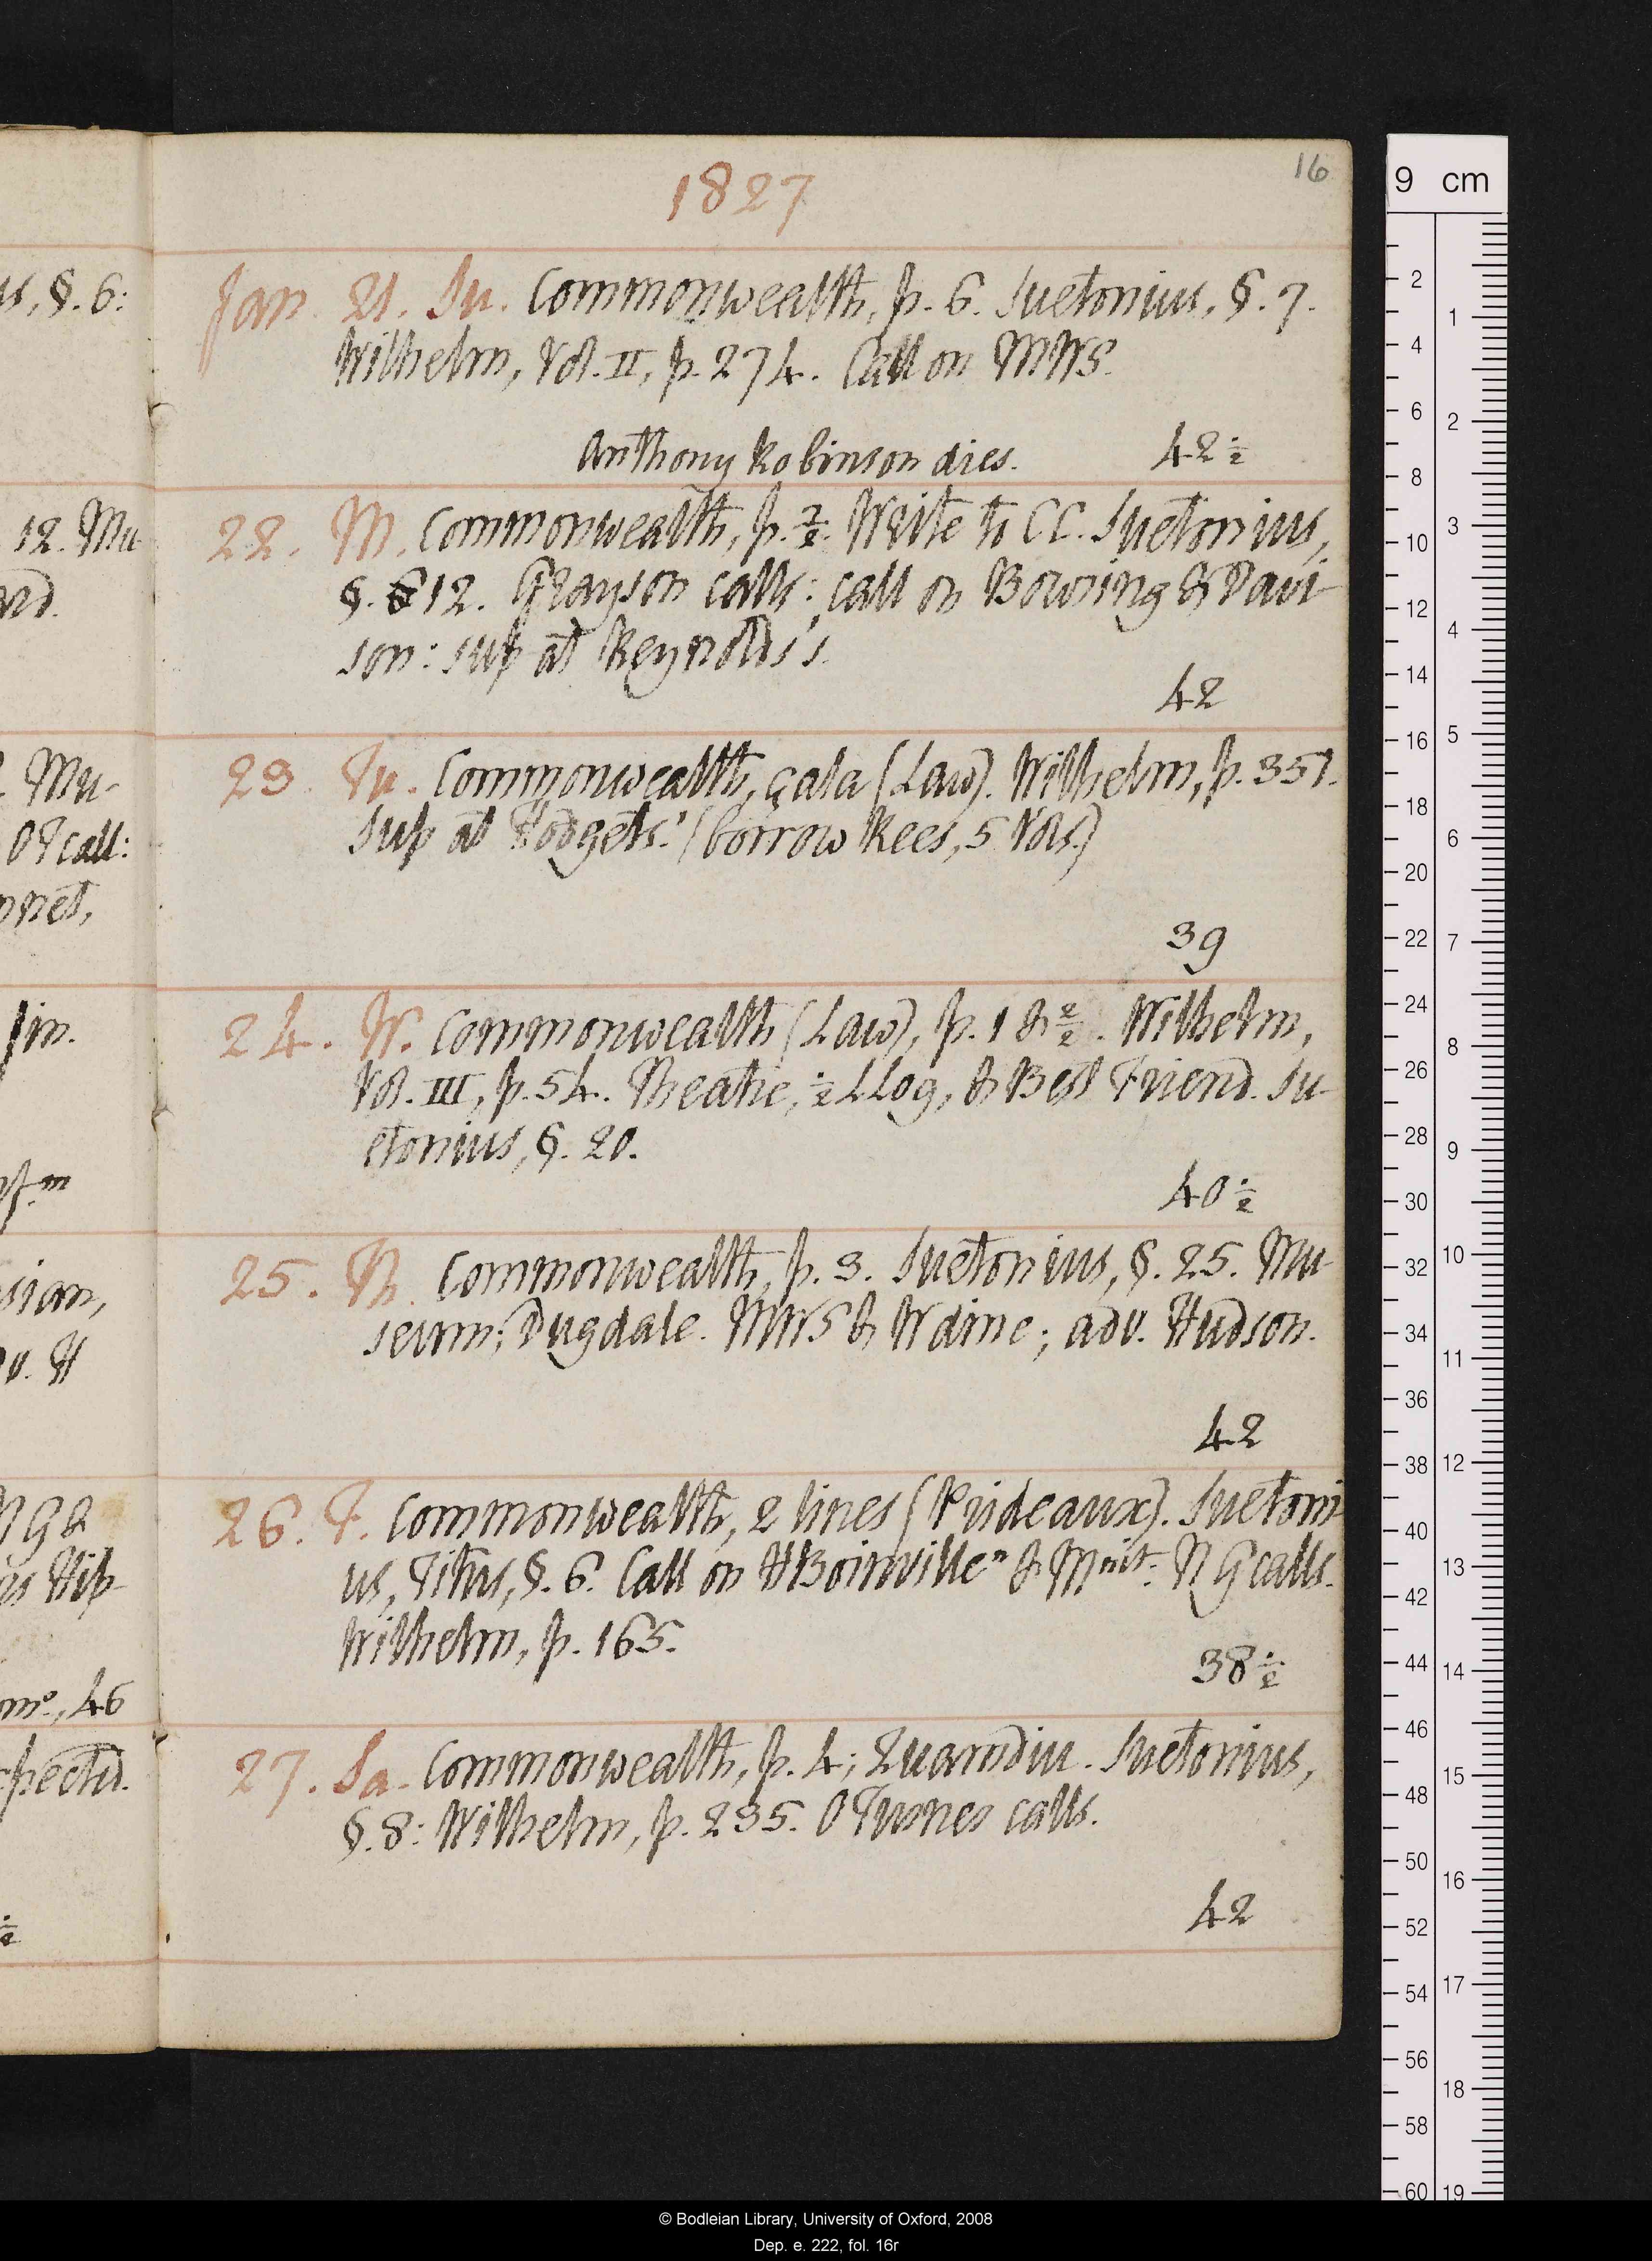 16
1827
us, §. 6:
Jan. 21. Su. Commonwealth, p. 6. Suetonius, §. 7.
Wilhelm, Vol. II, p. 274. Call on MWS.
Anthony Robinson dies. 42½
12. Mu
22. M. Commonwealth, p. 7/2. Write to CC. Suetonius,
§. 12. Grayson calls: call on Bowring & Davi-
son: sup at Reynolds's.
42
Mu-
23. Tu. Commonwealth, çala (Law). Wilhelm, p. 351.
OT call:
Sup at Hodgets' (borrow Rees, 5 Vols.)
39
24. W. Commonwealth (Law), p. 1 & 2/2. Wilhelm,
Vol. III, p. 54. Theatre, ½ LLog, & Best Friend. Su-
etonius, §. 20.
40½
25. Th. Commonwealth, p. 3. Suetonius, §. 25. Mu-
seum; Dugdale. MWS & W dine; adv. Hudson.
v. H
42
26. F. Commonwealth, 2 lines (Prideaux). Suetoni-
us, Titus, §. 6. Call on HBoinville n & M nit: N G calls.
Wilhelm, p. 165.
38½
46
27. Sa. Commonwealth, p. 4; Quamdiu. Suetonius,
§. 8: Wilhelm, p. 235. O Turner calls.
42
9 cm
2 4 6 8 10 12 14 16 18 20 22 24 26 28 30 32 34 36 38 40 42 44 46 48 50 52 54 56 58 60
1 2 3 4 5 6 7 8 9 10 11 12 13 14 15 16 17 18 19
© Bodleian Library, University of Oxford, 2008
Dep. e. 222, fol. 16r